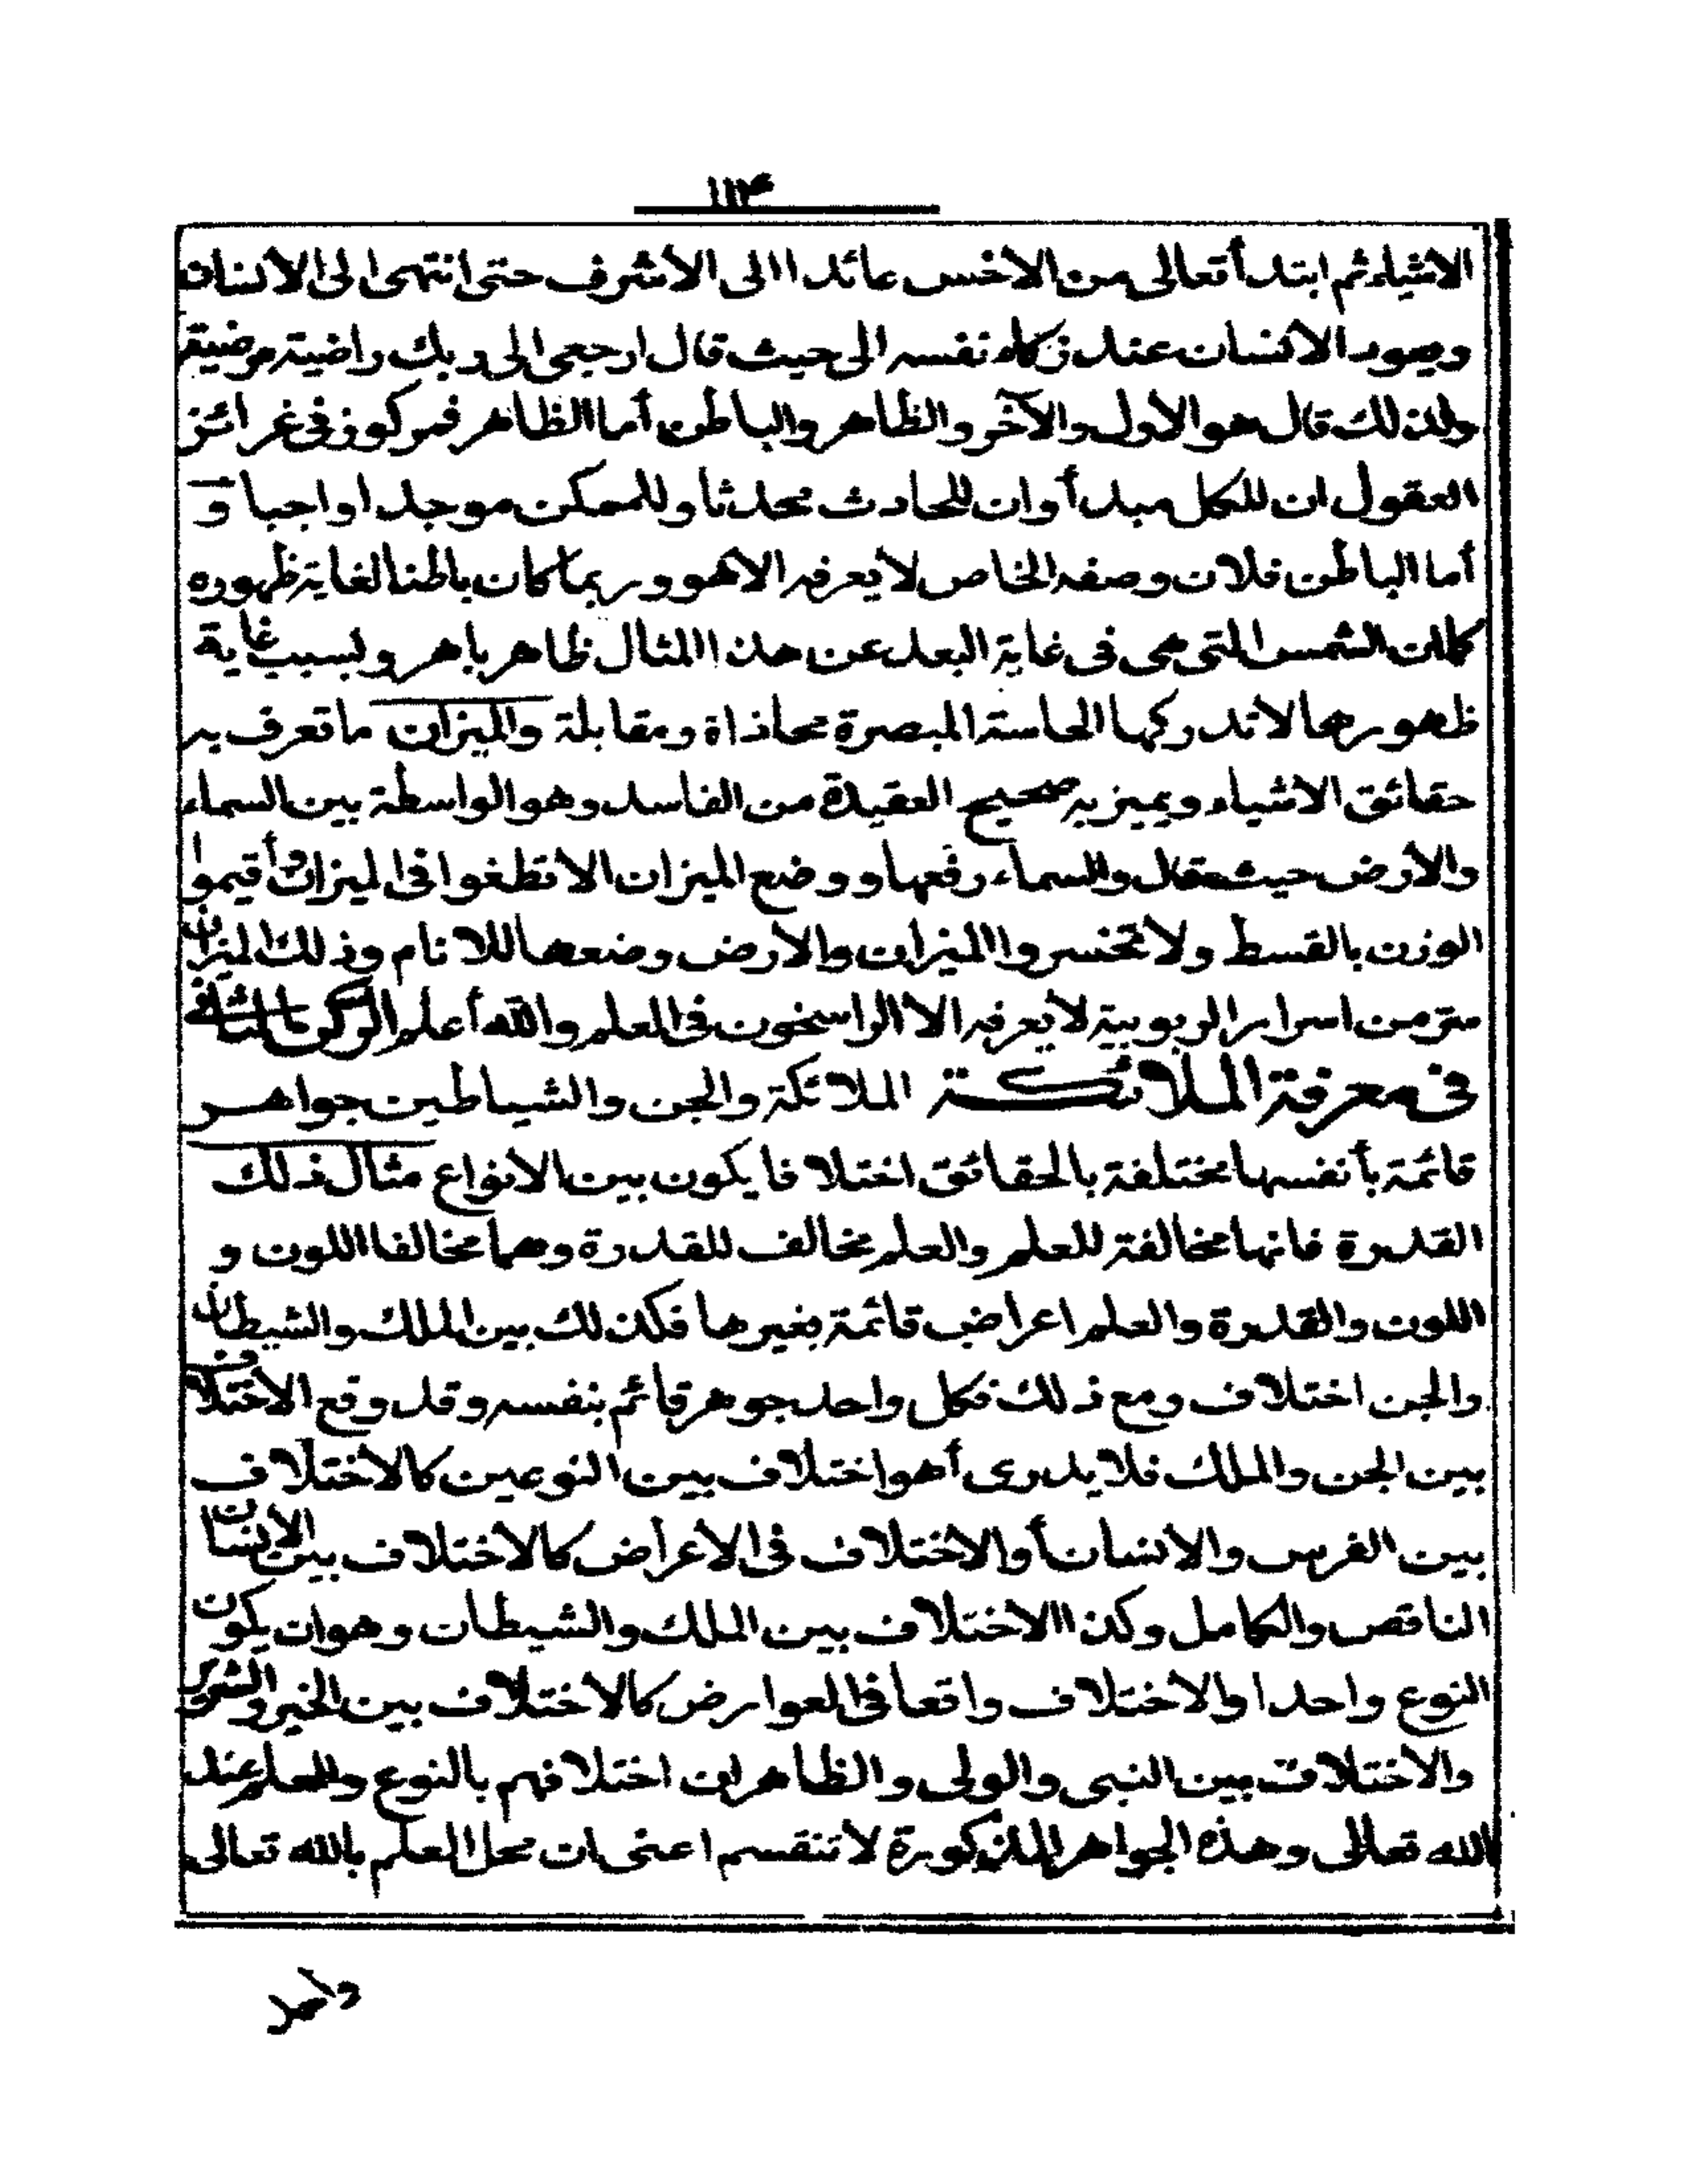 ١١٤
الاشياء ثم ابتدأ تعالى من الاخس عائدا الى الاشرف حتى انتهى الى الانسان
ويعود الانسان عند زكاء نفسه الى حيث قال ارجعى الى ربك راضية مرضية
ولذلك قال هو الأول والآخر والظاهر والباطن أما الظاهر فمركوز فى غرائز
العقول ان للكل مبدأ وان للحادث محدثا وللممكن موجدا واجبا و
أما الباطن فلان وصفه الخاص لا يعرفه الا هو وربما كان باطنا لغاية ظهوره
كما ان الشمس التى هى فى غاية البعد عن هذا المثال ظاهر باهر وبسبب غاية
ظهورها لا تدركها الحاسة المبصرة محاذاة ومقابلة والميزان ما تعرف به
حقائق الاشياء ويميز به صحيح العقيدة من الفاسد وهو الواسطة بين السماء
والأرض حيث قال والسماء رفعها ووضع الميزان الا تطغوا فى الميزان وأقيموا
الوزن بالقسط ولا تخسروا الميزان والأرض وضعها للانام وذلك الميزان
سر من اسرار الربوبية لا يعرفه الا الراسخون فى العلم والله أعلم الركن الثانى
فى معرفة الملائكة الملائكة والجن والشياطين جواهر
قائمة بأنفسها مختلفة بالحقائق اختلافا يكون بين الانواع مثال ذلك
القدرة فانها مخالفة للعلم والعلم مخالف للقدرة وهما مخالفا اللون و
اللون والقدرة والعلم اعراض قائمة بغيرها فكذلك بين الملك والشيطان
والجن اختلاف ومع ذلك فكل واحد جوهر قائم بنفسه وقد وقع الاختلاف
بين الجن والملك فلا يدرى أهو اختلاف بين النوعين كالاختلاف
بين الفرس والانسان أو الاختلاف فى الأعراض كالاختلاف بين الانسان
الناقص والكامل وكذا الاختلاف بين الملك والشيطان وهو ان يكون
النوع واحدا والاختلاف واقعا فى العوارض كالاختلاف بين الخير والشرير
والاختلاف بين النبى والولى والظاهر ان اختلافهم بالنوع والعلم عند
الله تعالى وهذه الجواهر المذكورة لا تنقسم اعنى ان محل العلم بالله تعالى
واحد